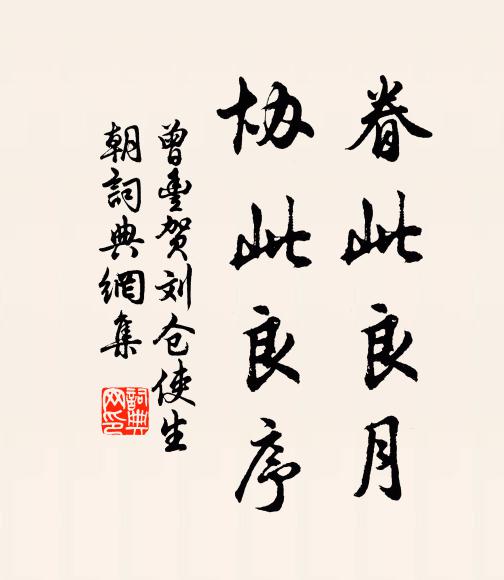 眷此良月
协此良序
曾豊贺刘仓使生
朝詞典網集
詞典
网印